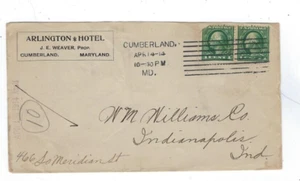 ARLINGTON HOTEL
J. E. WEAVER, Prop.
CUMBERLAND, MARYLAND.
CUMBERLAND,
10-30 PM
MD.
10
Wm Williams Co.
Indianapolis
Ind.
466 So Meridian St